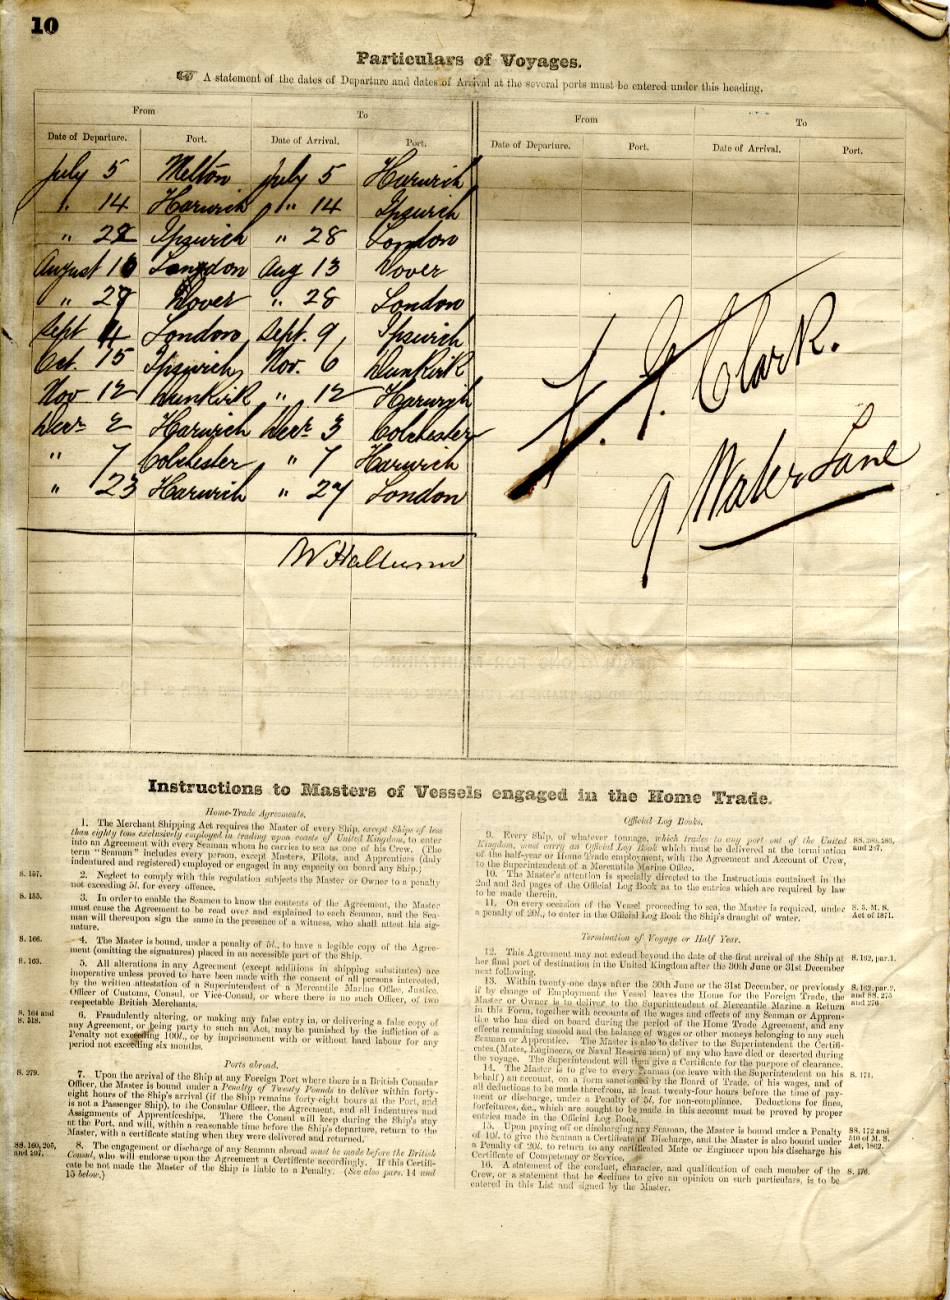 10
Particulars of Voyages.
A statement of the dates of Departure and dates of Arrival at the several ports must be entered under this heading.
From To From To
Date of Departure. Port. Date of Arrival. Port. Date of Departure. Port. Date of Arrival. Port.
July 5 Melton July 5 Harwich
" 14 Harwich " 14 Ipswich
" 28 Ipswich " 28 London
August 10 London Aug 13 Dover
" 27 Dover " 28 London
Sept 4 London Sept. 9 Ipswich
Oct. 15 Ipswich Nov. 6 Dunkirk
Nov 12 Dunkirk " 12 Harwich
Decr 2 Harwich Decr 3 Colchester
" 7 Colchester " 7 Harwich
" 23 Harwich " 27 London
Clark.
9 Water Lane
Instructions to Masters of Vessels engaged in the Home Trade.
Home-Trade Agreements.
1. The Merchant Shipping Act requires the Master of every Ship, except Ships of less
than eighty tons exclusively employed in trading upon coasts of United Kingdom, to enter
into an Agreement with every Seaman whom he carries to sea as one of his Crew. (The
term "Seaman" includes every person, except Masters, Pilots, and Apprentices (duly
indentured and registered) employed or engaged in any capacity on board any Ship.)
S. 157. 2. Neglect to comply with this regulation subjects the Master or Owner to a penalty
not exceeding 5l. for every offence.
S. 155. 3. In order to enable the Seamen to know the contents of the Agreement, the Master
must cause the Agreement to be read over and explained to each Seaman, and the Sea-
man will thereupon sign the same in the presence of a witness, who shall attest his sig-
nature.
S. 166. 4. The Master is bound, under a penalty of 5l., to have a legible copy of the Agree-
ment (omitting the signatures) placed in an accessible part of the Ship.
S. 163. 5. All alterations in any Agreement (except additions in shipping substitutes) are
inoperative unless proved to have been made with the consent of all persons interested,
by the written attestation of a Superintendent of a Mercantile Marine Office, Justice,
Officer of Customs, Consul, or Vice-Consul, or where there is no such Officer, of two
respectable British Merchants.
S. 164 and S. 518. 6. Fraudulently altering, or making any false entry in, or delivering a false copy of
any Agreement, or being party to such an Act, may be punished by the infliction of a
Penalty not exceeding 100l., or by imprisonment with or without hard labour for any
period not exceeding six months.
Ports abroad.
S. 279. 7. Upon the arrival of the Ship at any Foreign Port where there is a British Consular
Officer, the Master is bound under a Penalty of Twenty Pounds to deliver within forty-
eight hours of the Ship's arrival (if the Ship remains forty-eight hours at the Port, and
is not a Passenger Ship), to the Consular Officer, the Agreement, and all Indentures and
Assignments of Apprenticeships. There the Consul will keep during the Ship's stay
at the Port, and will, within a reasonable time before the Ship's departure, return to the
Master, with a certificate stating when they were delivered and returned.
SS. 160, 205, and 207. 8. The engagement or discharge of any Seaman abroad must be made before the British
Consul, who will endorse upon the Agreement a Certificate accordingly. If this Certifi-
cate be not made the Master of the Ship is liable to a Penalty. (See also pars. 14 and
15 below.)
Official Log Books.
9. Every Ship, of whatever tonnage, which trades to any port out of the United
Kingdom, must carry an Official Log Book which must be delivered at the termination
of the half-year or Home Trade employment, with the Agreement and Account of Crew,
to the Superintendent of a Mercantile Marine Office.
10. The Master's attention is specially directed to the Instructions contained in the
2nd and 3rd pages of the Official Log Book as to the entries which are required by law
to be made therein.
11. On every occasion of the Vessel proceeding to sea, the Master is required, under
a penalty of 20l., to enter in the Official Log Book the Ship's draught of water.
S. 5, M. S. Act of 1871.
Termination of Voyage or Half Year.
12. This Agreement may not extend beyond the date of the first arrival of the Ship at
her final port of destination in the United Kingdom after the 30th June or 31st December
next following.
S. 162, par. 1.
13. Within twenty-one days after the 30th June, or the 31st December, or previously
if by change of Employment the Vessel leaves the Home for the Foreign Trade, the
Master or Owner is to deliver to the Superintendent of Mercantile Marine a Return
in this Form, together with accounts of the wages and effects of any Seaman or Appren-
tice who has died on board during the period of the Home Trade Agreement, and any
effects remaining unsold and the balance of wages or other moneys belonging to any such
Seaman or Apprentice. The Master is also to deliver to the Superintendent the Certifi-
cates (Mates, Engineers, or Naval Reserve men) of any who have died or deserted during
the voyage. The Superintendent will then give a Certificate for the purpose of clearance.
14. The Master is to give to every Seaman (or leave with the Superintendent on his
behalf) an account, on a form sanctioned by the Board of Trade, of his wages, and of
all deductions to be made therefrom, at least twenty-four hours before the time of pay-
ment or discharge, under a Penalty of 5l. for non-compliance. Deductions for fines,
forfeitures, &c., which are sought to be made in this account must be proved by proper
entries made in the Official Log Book.
S. 171.
15. Upon paying off or discharging any Seaman, the Master is bound under a Penalty
of 10l. to give the Seaman a Certificate of Discharge, and the Master is also bound under
a Penalty of 20l. to return to any certificated Mate or Engineer upon his discharge his
Certificate of Competency or Service.
16. A statement of the conduct, character, and qualification of each member of the
Crew, or a statement that he declines to give an opinion on such particulars, is to be
entered in this List and signed by the Master.
S. 176.